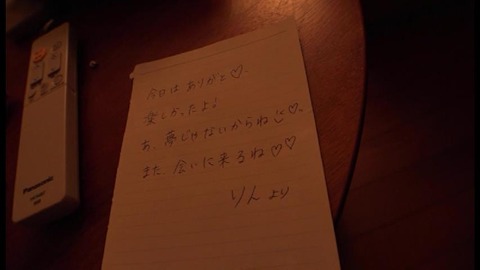 今日はありがと♡.
楽しかったよ!
あ、夢じゃないからね♡、
また、会いに来るね♡♡
りんより
Panasonic